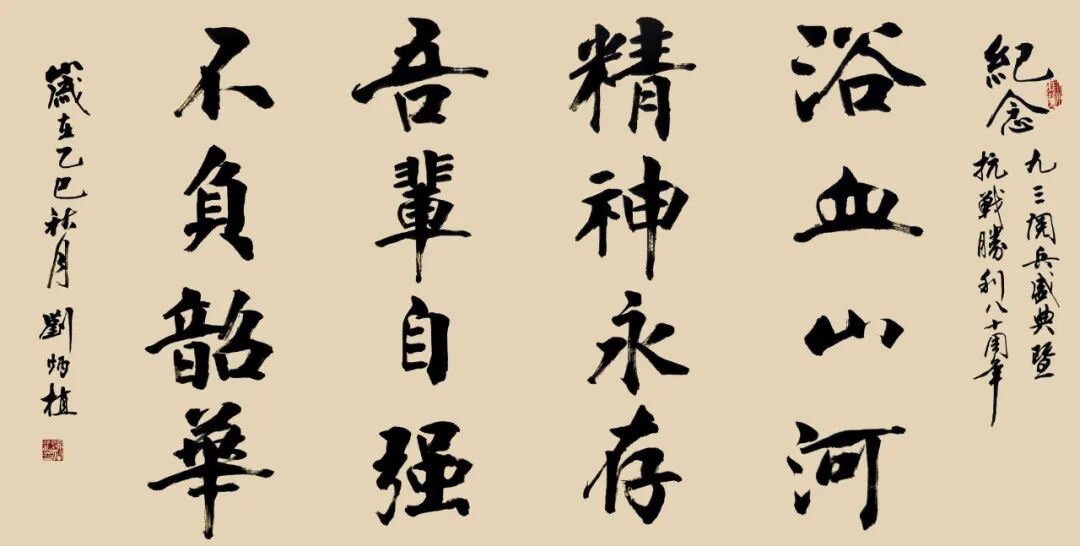 紀念
九三閱兵盛典暨
抗戰勝利八十周年
浴血山河
精神永存
吾輩自强
不負韶華
歲在乙巳秋月
劉炳植